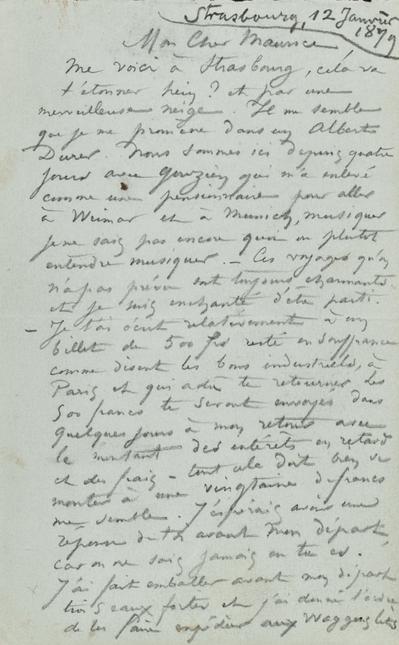 Strasbourg, 12 Janvier
1879
Mon Cher Maurice
Me voici à Strasbourg, cela va
t'étonner hein? et par une
merveilleuse neige. Il me semble
que je me promène dans un Albert
Durer. Nous sommes ici depuis quatre
jours avec Gouzien qui m'a enlevé
comme une pensionnaire pour aller
à Weimar et à Munich, musiquer
je ne sais pas encore quoi ou plutôt
entendre musiquer. — Ces voyages qu'on
n'a pas prévu sont toujours charmants
et je suis enchanté d'être parti.
— Je t'ai écrit relativement à un
billet de 500 frs resté en souffrance
comme disent les bons industriels, à
Paris et qui a dû te retourner. Les
500 francs te seront envoyés dans
quelques jours à mon retour avec
le montant des intérêts en retard
et des frais — tout cela doit bien se
monter à une vingtaine de francs
me semble. J'espérais avoir une
réponse de toi avant mon départ
car on ne sait jamais où tu es.
J'ai fait emballer avant mon départ
trois eaux fortes et j'ai donné l'ordre
de les faire expédier aux